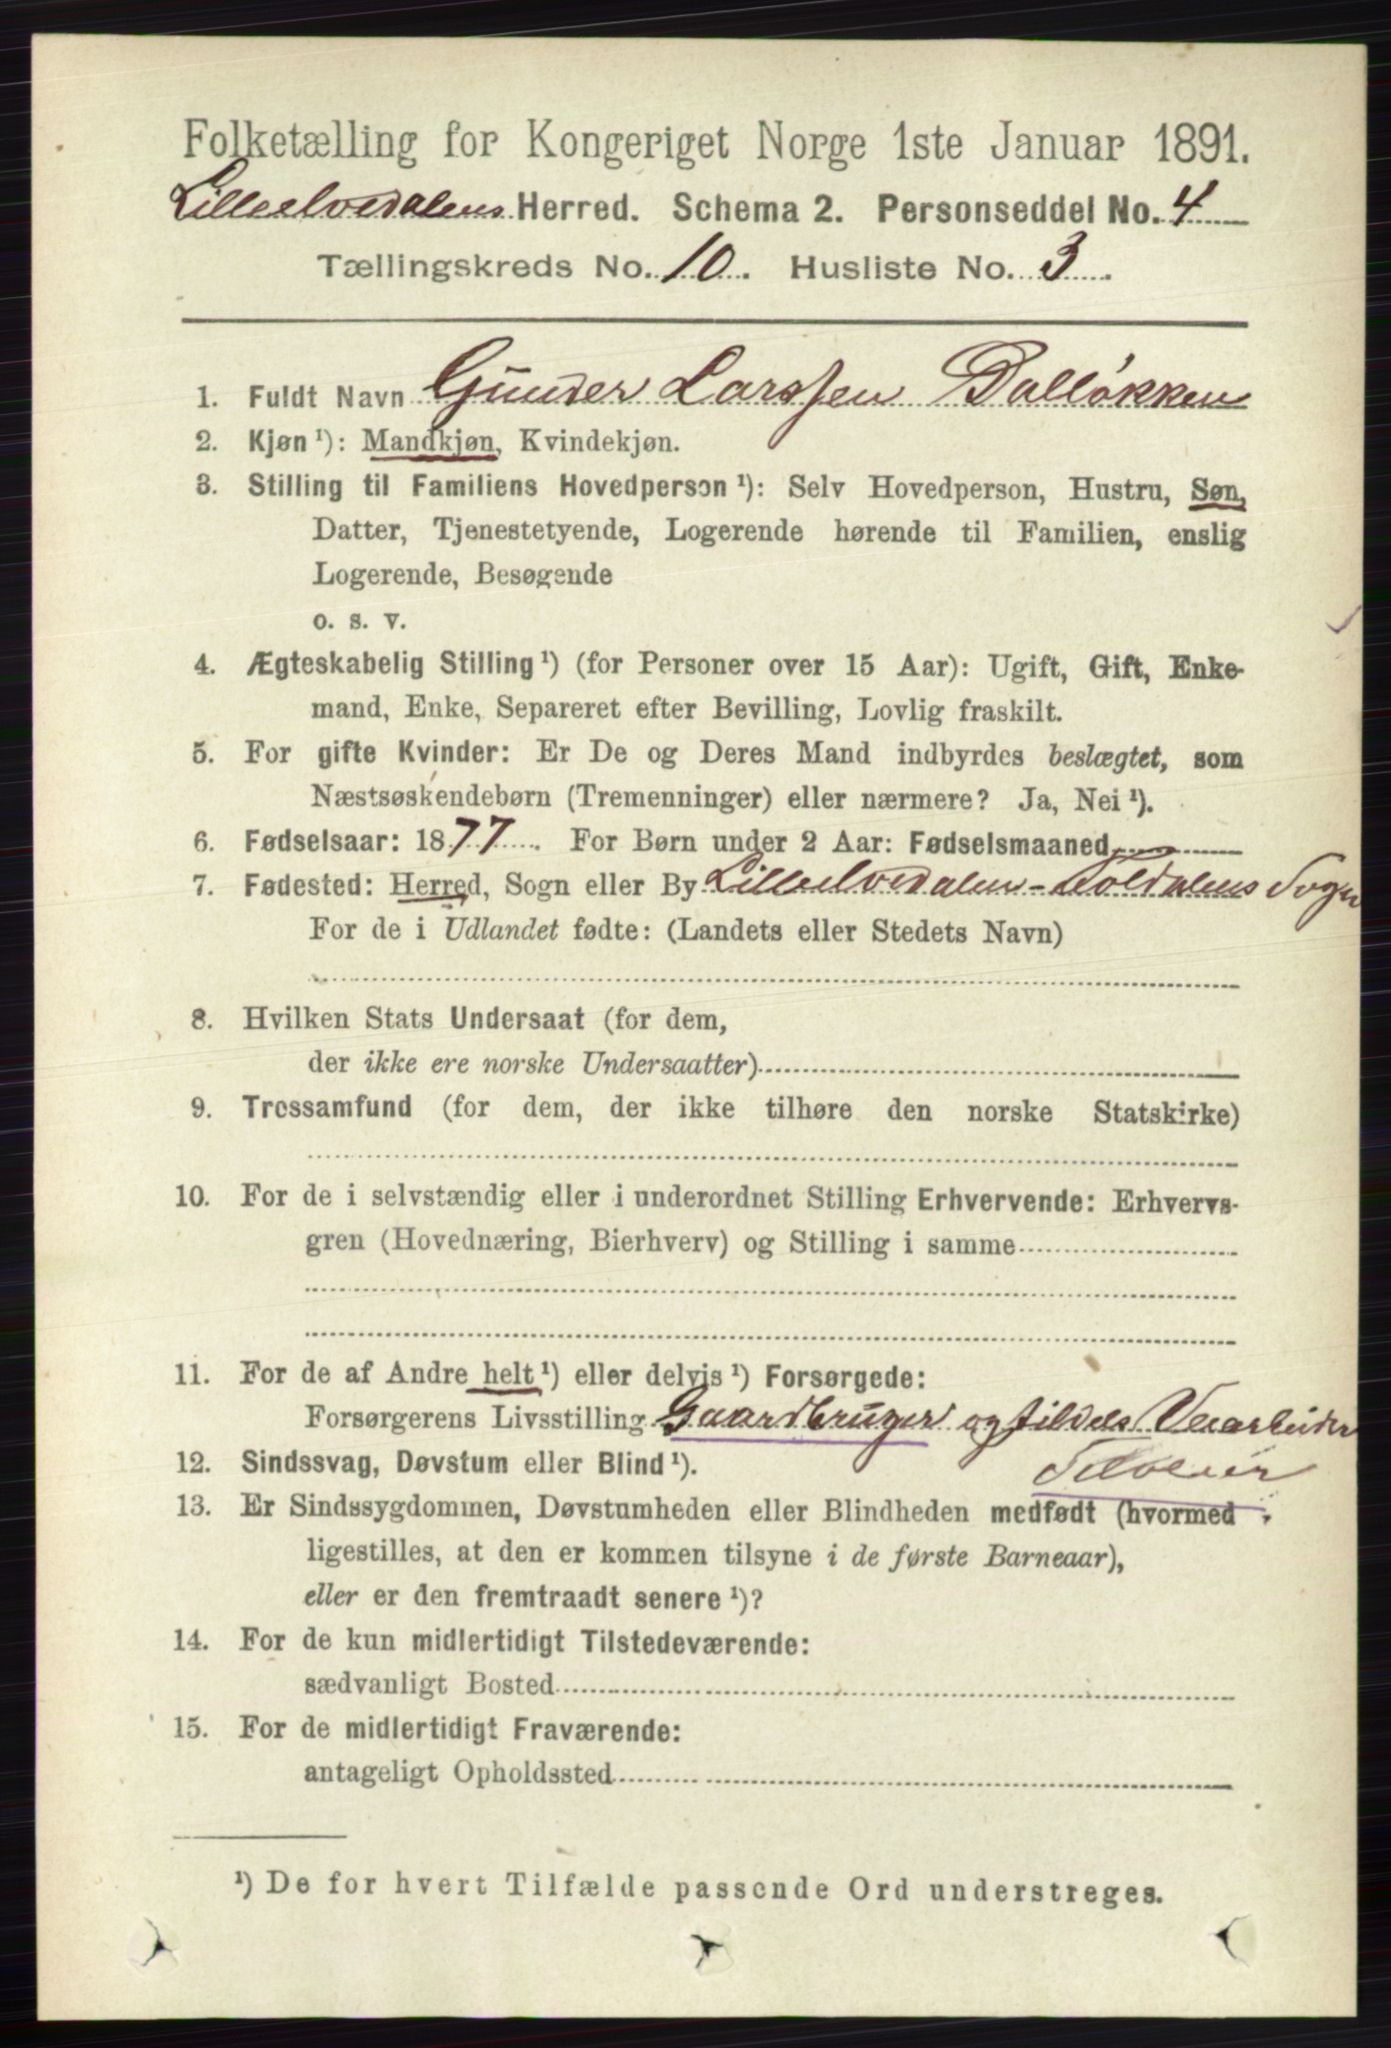 Folketælling for Kongeriget Norge 1ste Januar 1891.
Lilleelvedalens Herred. Schema 2. Personseddel No. 4
Tællingskreds No. 10. Husliste No. 3.
1. Fuldt Navn Gunder Larssen Balløkken
2. Kjøn ¹): Mandkjøn, Kvindekjøn.
3. Stilling til Familiens Hovedperson ¹): Selv Hovedperson, Hustru, Søn,
Datter, Tjenestetyende, Logerende hørende til Familien, enslig
Logerende, Besøgende
o. s. v.
4. Ægteskabelig Stilling ¹) (for Personer over 15 Aar): Ugift, Gift, Enke-
mand, Enke, Separeret efter Bevilling, Lovlig fraskilt.
5. For gifte Kvinder: Er De og Deres Mand indbyrdes beslægtet, som
Næstsøskendebørn (Tremenninger) eller nærmere? Ja, Nei ¹).
6. Fødselsaar: 1877. For Børn under 2 Aar: Fødselsmaaned
7. Fødested: Herred, Sogn eller By Lilleelvedalen - Foldalens Sogn
For de i Udlandet fødte: (Landets eller Stedets Navn)
8. Hvilken Stats Undersaat (for dem,
der ikke ere norske Undersaatter)
9. Trossamfund (for dem, der ikke tilhøre den norske Statskirke)
10. For de i selvstændig eller i underordnet Stilling Erhvervende: Erhvervs-
gren (Hovednæring, Bierhverv) og Stilling i samme
11. For de af Andre helt ¹) eller delvis ¹) Forsørgede:
Forsørgerens Livsstilling Gaardbruger og tildels Veiarbeider
Selveier
12. Sindssvag, Døvstum eller Blind ¹).
13. Er Sindssygdommen, Døvstumheden eller Blindheden medfødt (hvormed
ligestilles, at den er kommen tilsyne i de første Barneaar),
eller er den fremtraadt senere ¹)?
14. For de kun midlertidigt Tilstedeværende:
sædvanligt Bosted
15. For de midlertidigt Fraværende:
antageligt Opholdssted
¹) De for hvert Tilfælde passende Ord understreges.